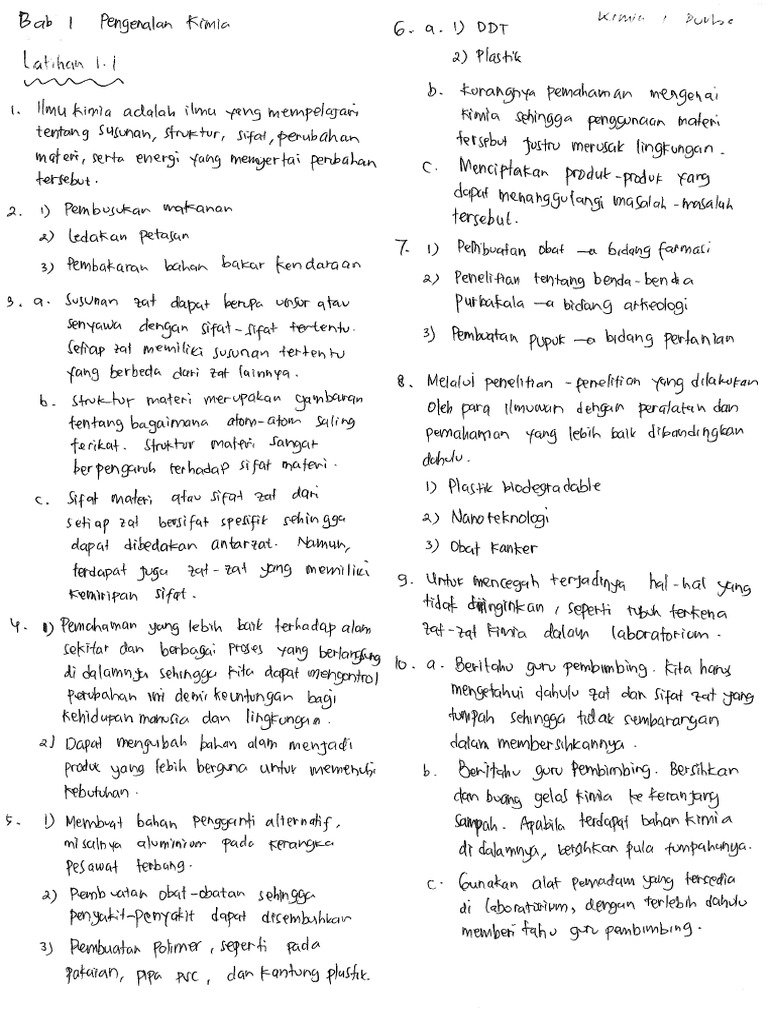 Bab 1 Pengenalan Kimia
Latihan 1.1
1. Ilmu kimia adalah ilmu yang mempelajari
tentang susunan, struktur, sifat, perubahan
materi, serta energi yang menyertai perubahan
tersebut.
2. 1) Pembusukan makanan
2) Ledakan petasan
3) Pembakaran bahan bakar kendaraan
3. a. Susunan zat dapat berupa unsur atau
senyawa dengan sifat-sifat tertentu.
Setiap zat memiliki susunan tertentu
yang berbeda dari zat lainnya.
b. Struktur materi merupakan gambaran
tentang bagaimana atom-atom saling
terikat. Struktur materi sangat
berpengaruh terhadap sifat materi.
c. Sifat materi atau sifat zat dari
setiap zat bersifat spesifik sehingga
dapat dibedakan antarzat. Namun,
terdapat juga zat-zat yang memiliki
kemiripan sifat.
4. 1) Pemahaman yang lebih baik terhadap alam
sekitar dan berbagai proses yang berlangsung
di dalamnya sehingga kita dapat mengontrol
perubahan ini demi keuntungan bagi
kehidupan manusia dan lingkungan.
2) Dapat mengubah bahan alam menjadi
produk yang lebih berguna untuk memenuhi
kebutuhan.
5. 1) Membuat bahan pengganti alternatif,
misalnya aluminium pada kerangka
pesawat terbang.
2) Pembuatan obat-obatan sehingga
penyakit-penyakit dapat disembuhkan
3) Pembuatan polimer, seperti pada
pakaian, pipa PVC, dan kantung plastik.
Kimia 1
6. a. 1) DDT
2) Plastik
b. Kurangnya pemahaman mengenai
kimia sehingga penggunaan materi
tersebut justru merusak lingkungan.
c. Menciptakan produk-produk yang
dapat menanggulangi masalah-masalah
tersebut.
7. 1) Pembuatan obat → bidang farmasi
2) Penelitian tentang benda-benda
purbakala → bidang arkeologi
3) Pembuatan pupuk → bidang pertanian
8. Melalui penelitian-penelitian yang dilakukan
oleh para ilmuwan dengan peralatan dan
pemahaman yang lebih baik dibandingkan
dahulu.
1) Plastik biodegradable
2) Nanoteknologi
3) Obat kanker
9. Untuk mencegah terjadinya hal-hal yang
tidak diinginkan, seperti tubuh terkena
zat-zat kimia dalam laboratorium.
10. a. Beritahu guru pembimbing. Kita harus
mengetahui dahulu zat dan sifat zat yang
tumpah sehingga tidak sembarangan
dalam membersihkannya.
b. Beritahu guru pembimbing. Bersihkan
dan buang gelas kimia ke keranjang
sampah. Apabila terdapat bahan kimia
di dalamnya, bersihkan pula tumpahannya.
c. Gunakan alat pemadam yang tersedia
di laboratorium, dengan terlebih dahulu
memberi tahu guru pembimbing.